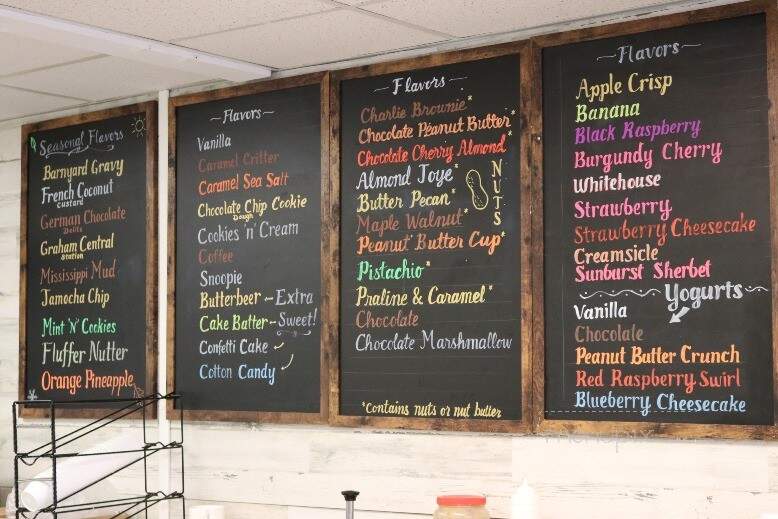 Seasonal Flavors
Barnyard Gravy
French Coconut
Custard
German Chocolate
Graham Central
Station
Mississippi Mud
Jamocha Chip
Mint 'N' Cookies
Fluffer Nutter
Orange Pineapple
~Flavors~
Vanilla
Caramel Critter
Caramel Sea Salt
Chocolate Chip Cookie
Dough
Cookies 'n' Cream
Coffee
Snoopie
Butterbeer - Extra
Cake Batter - Sweet!
Confetti Cake
Cotton Candy
~Flavors~
Charlie Brownie*
Chocolate Peanut Butter*
Chocolate Cherry Almond*
Almond Joye*
Butter Pecan*
Maple Walnut*
Peanut Butter Cup*
NUTS
Pistachio*
Praline & Caramel*
Chocolate
Chocolate Marshmallow
*Contains nuts or nut butter
~Flavors~
Apple Crisp
Banana
Black Raspberry
Burgundy Cherry
Whitehouse
Strawberry
Strawberry Cheesecake
Creamsicle
Sunburst Sherbet
Yogurts
Vanilla
Chocolate
Peanut Butter Crunch
Red Raspberry Swirl
Blueberry Cheesecake